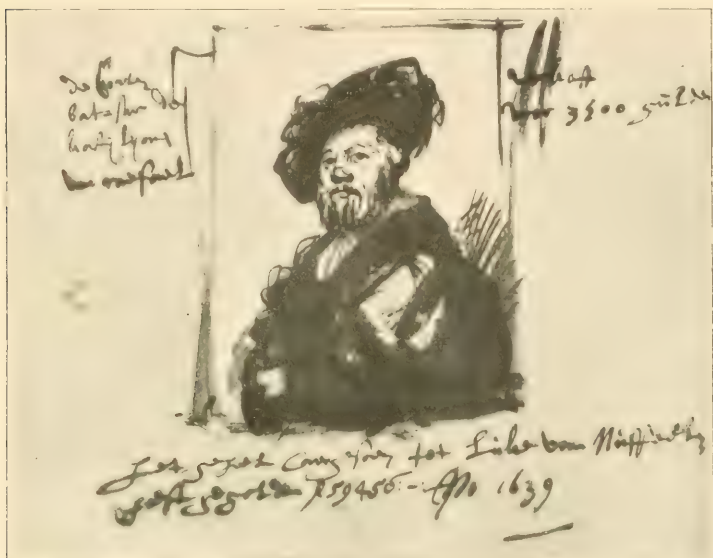 de Conte
batasar de
kastijlyone
van raefael
verkoft
voor 3500 gulden
het geheel caergesoen tot Luke van Nuffeelen
heeft gegolden f 59456:- Ao 1639